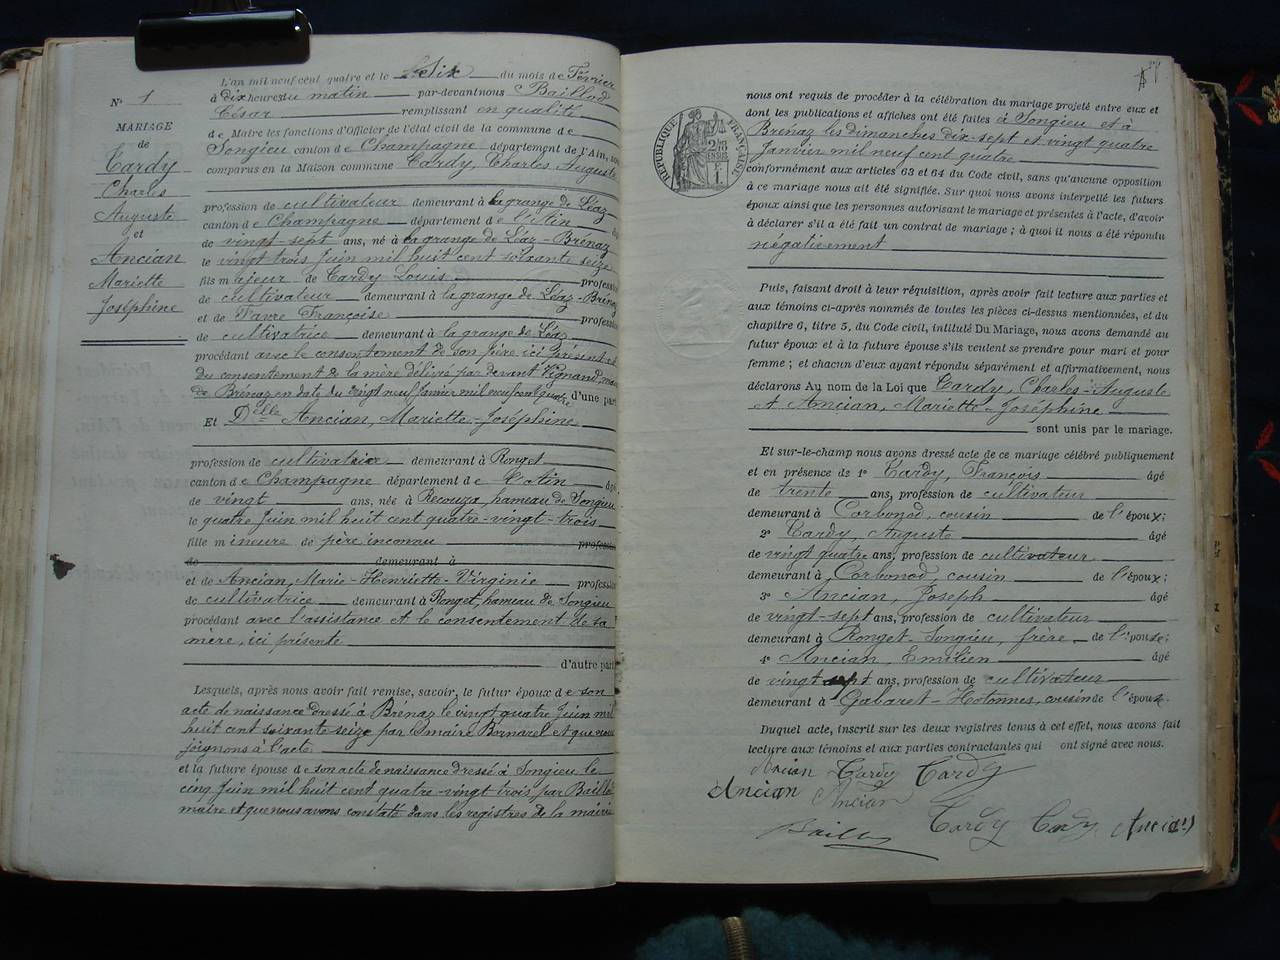 N° 1
MARIAGE
de
Tardy
Charles
Auguste
et
Ancian
Mariette
Joséphine
L'an mil neuf cent quatre et le Six du mois de Février
à dix heures du matin par-devant nous Baillod
César remplissant en qualité
de Maire les fonctions d'Officier de l'état civil de la commune de
Songieu canton de Champagne département de l'Ain,
comparus en la Maison commune Tardy, Charles Auguste
profession de cultivateur demeurant à la grange de Léaz
canton de Champagne département de l'Ain
de vingt-sept ans, né à la grange de Léaz-Brénaz
le vingt trois Juin mil huit cent soixante seize
fils majeur de Tardy Louis profession
de cultivateur demeurant à la grange de Léaz-Brénaz
et de Favre Françoise profession
de cultivatrice demeurant à la grange de Léaz
procédant avec le consentement de son père, ici présent et
du consentement de la mère délivré par devant Vignand, maire
de Brénaz en date du vingt neuf Janvier mil neuf cent quatre d'une part
Et Delle Ancian, Mariette-Joséphine
profession de cultivatrice demeurant à Ronget
canton de Champagne département de l'Ain âgé
de vingt ans, née à Recouza, hameau de Songieu
le quatre Juin mil huit cent quatre-vingt-trois
fille mineure de père inconnu profession
de demeurant à
et de Ancian, Marie-Henriette-Virginie profession
de cultivatrice demeurant à Ronget, hameau de Songieu
procédant avec l'assistance et le consentement de sa
mère, ici présente
d'autre part
Lesquels, après nous avoir fait remise, savoir, le futur époux de son
acte de naissance dressé à Brénaz le vingt quatre Juin mil
huit cent soixante-seize par le maire Bornarel et que nous
joignons à l'acte
et la future épouse de son acte de naissance dressé à Songieu le
cinq Juin mil huit cent quatre-vingt trois par Baillod
maire et que nous avons constaté dans les registres de la mairie
RÉPUBLIQUE FRANÇAISE
nous ont requis de procéder à la célébration du mariage projeté entre eux et
dont les publications et affiches ont été faites à Songieu et à
Brénaz les dimanches dix-sept et vingt quatre
Janvier mil neuf cent quatre
conformément aux articles 63 et 64 du Code civil, sans qu'aucune opposition
à ce mariage nous ait été signifiée. Sur quoi nous avons interpellé les futurs
époux ainsi que les personnes autorisant le mariage et présentes à l'acte, d'avoir
à déclarer s'il a été fait un contrat de mariage ; à quoi il nous a été répondu
négativement
Puis, faisant droit à leur réquisition, après avoir fait lecture aux parties et
aux témoins ci-après nommés de toutes les pièces ci-dessus mentionnées, et du
chapitre 6, titre 5, du Code civil, intitulé Du Mariage, nous avons demandé au
futur époux et à la future épouse s'ils veulent se prendre pour mari et pour
femme ; et chacun d'eux ayant répondu séparément et affirmativement, nous
déclarons Au nom de la Loi que Tardy, Charles-Auguste
et Ancian, Mariette-Joséphine
sont unis par le mariage.
Et sur-le-champ nous avons dressé acte de ce mariage célébré publiquement
et en présence de 1° Tardy, François âgé
de trente ans, profession de cultivateur
demeurant à Corbonod, cousin de l'époux;
2° Tardy, Auguste âgé
de vingt quatre ans, profession de cultivateur
demeurant à Corbonod, cousin de l'époux;
3° Ancian, Joseph âgé
de vingt-sept ans, profession de cultivateur
demeurant à Ronget-Songieu, frère de l'épouse;
4° Ancian, Emilien âgé
de vingt sept ans, profession de cultivateur
demeurant à Gabaret-Hotonnes, cousin de l'épouse.
Duquel acte, inscrit sur les deux registres tenus à cet effet, nous avons fait
lecture aux témoins et aux parties contractantes qui ont signé avec nous.
Ancian Tardy Tardy
Ancian Ancian
Baillod Tardy Tardy Ancian